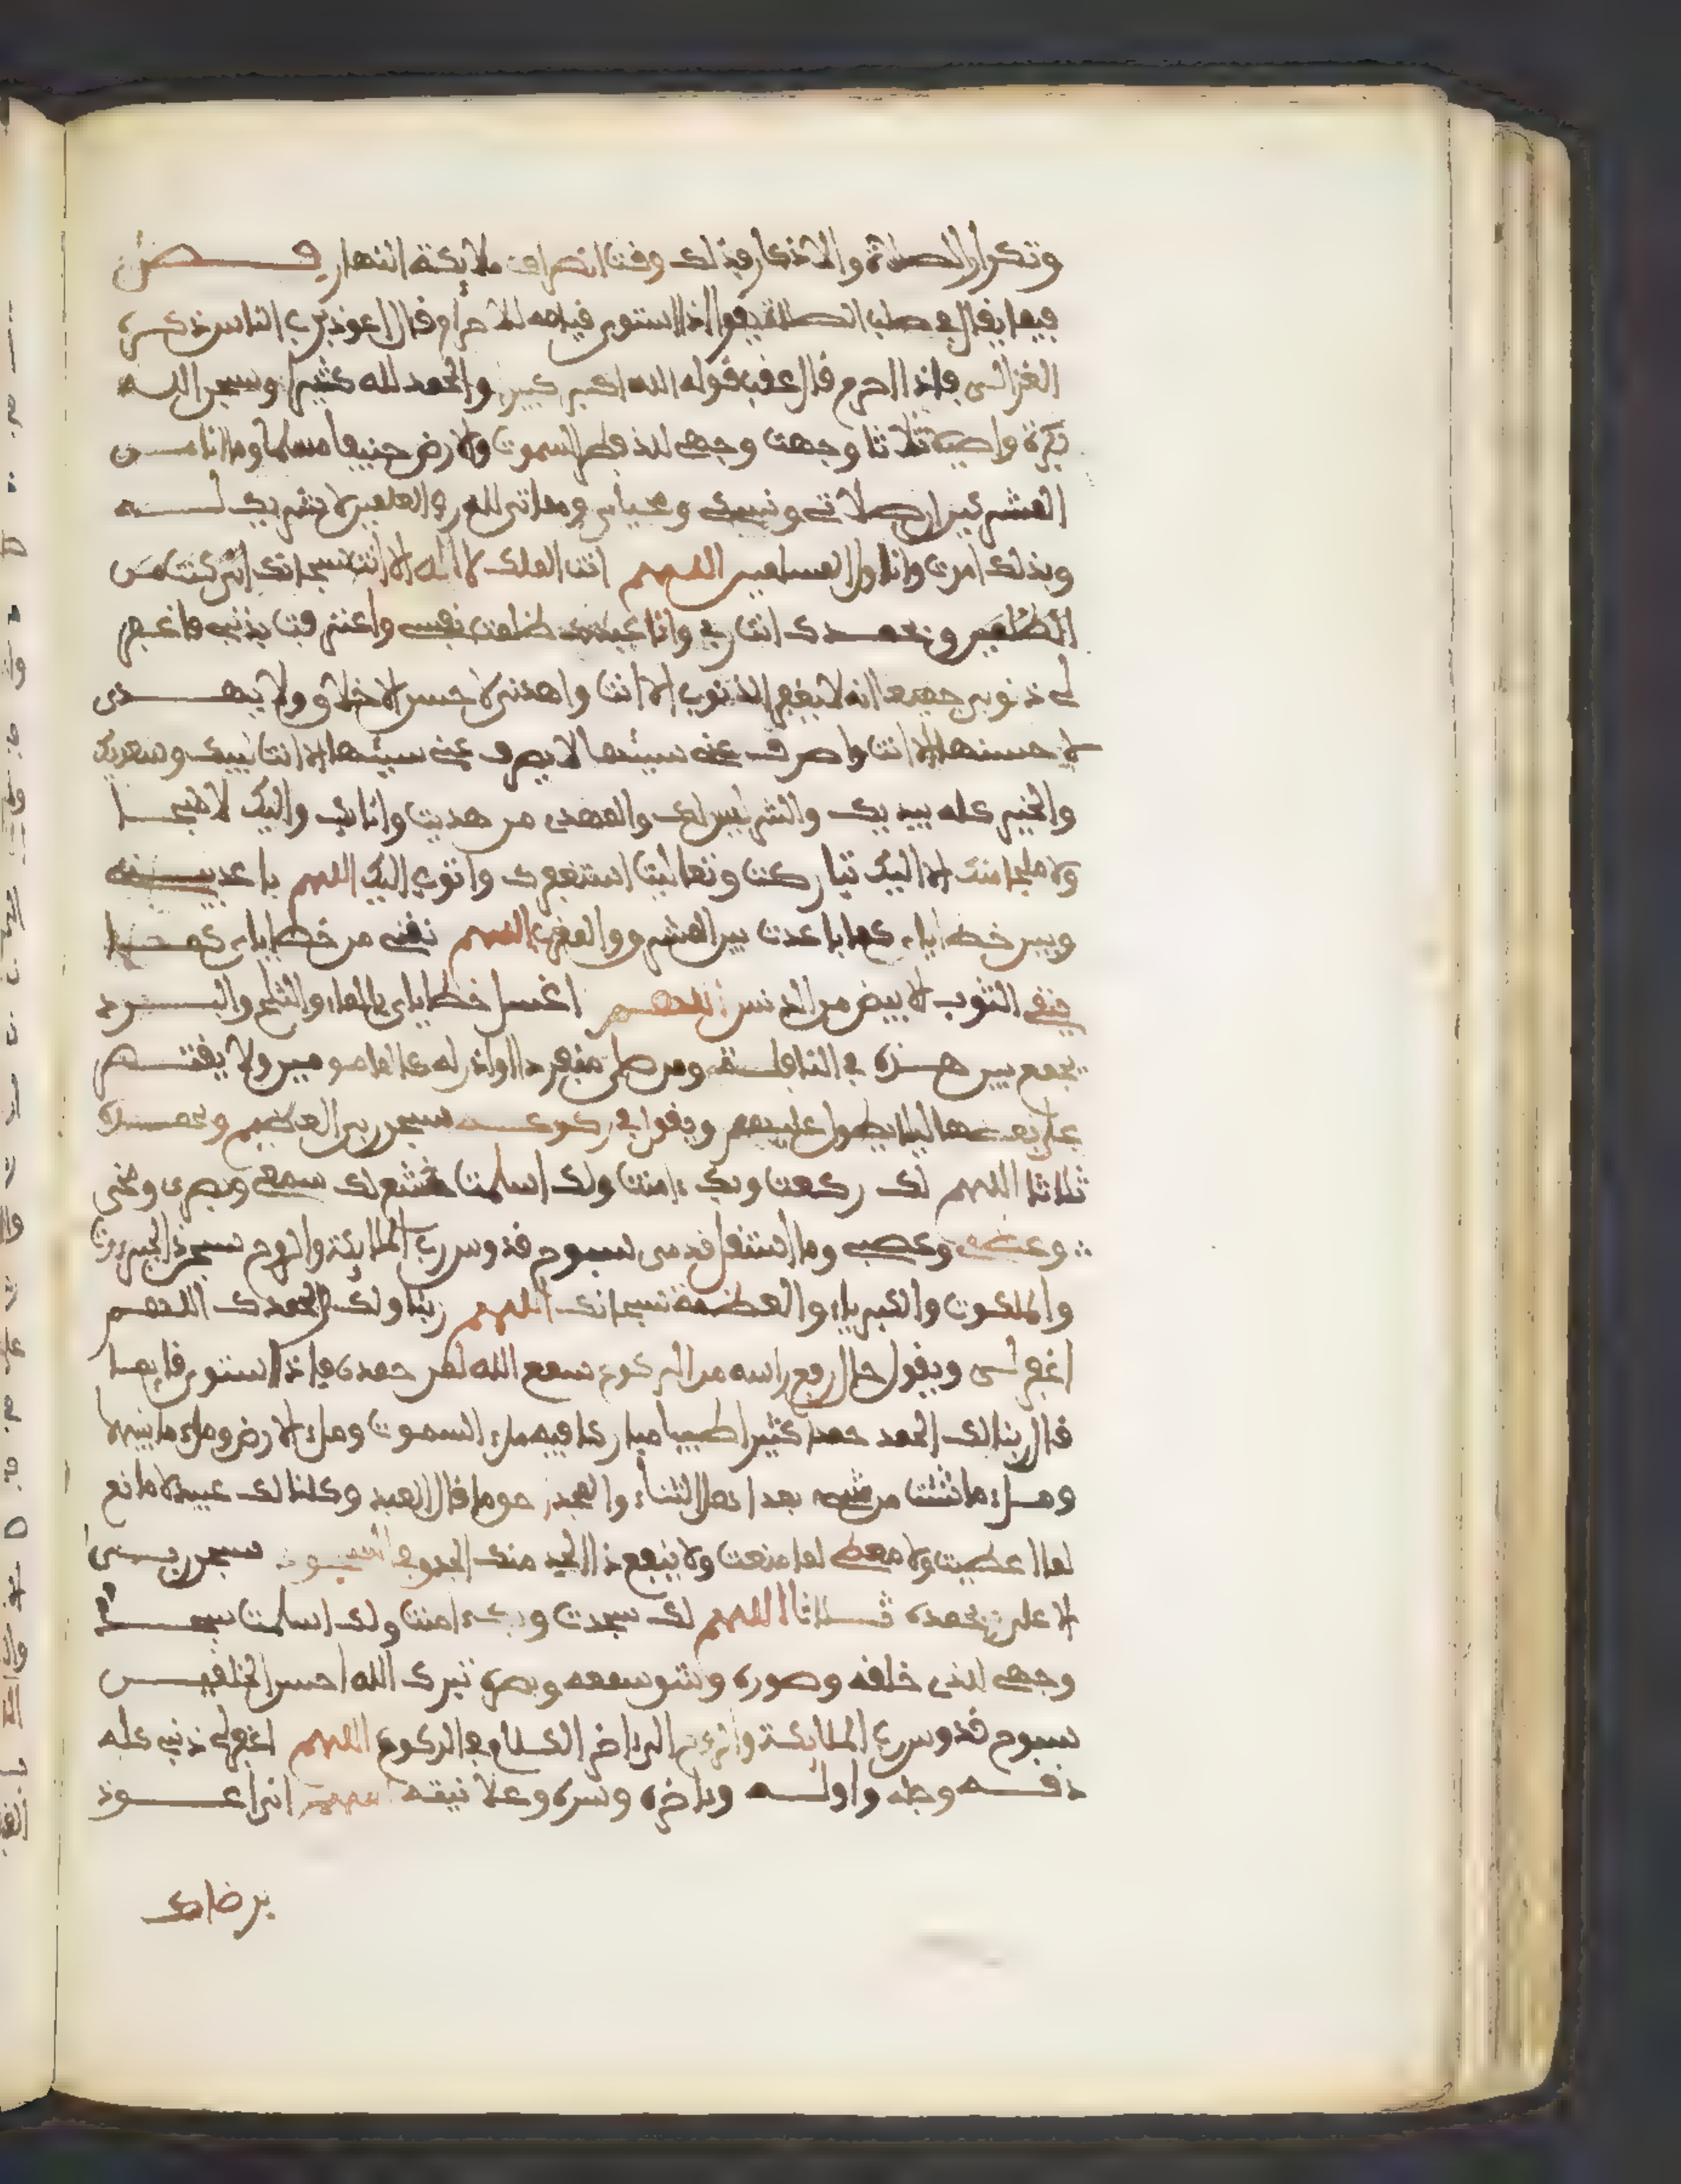 وتكرار الصلاة والاذكار فذلك وقت انصراف ملائكة النهار فصل
فيما يقال في صلب الصلاة يقول اذا استوى قيامه للاحرام قل اعوذ برب الناس ذكره
الغزالي فاذا احرم قال عقب قوله الله اكبر كبيرا والحمد لله كثيرا وسبحن الله
بكرة واصيلا ثلاثا وجهت وجهي للذي فطر السموت والارض حنيفا مسلما وما انا من
المشركين ان صلاتي ونسكي ومحياي ومماتي لله رب العلمين لا شريك له
وبذلك امرت وانا اول المسلمين اللهم انت الملك لا اله الا انت سبحانك اني كنت من
الظلمين وبحمدك انت ربي وانا عبدك ظلمت نفسي واعترفت بذنبي فاغفر
لي ذنوبي جميعا انه لا يغفر الذنوب الا انت واهدني لاحسن الاخلاق ولا يهدي
لاحسنها الا انت واصرف عني سيئها لا يصرف عني سيئها الا انت لبيك وسعديك
والخير كله بيديك والشر ليس لك والمهدي من هديت وانا بك واليك لا ملجا
ولا منجا منك الا اليك تباركت وتعاليت استغفرك واتوب اليك اللهم باعد بيني
وبين خطاياي كما باعدت بين المشرق والمغرب اللهم نقني من خطاياي كما
ينقى الثوب الابيض من الدنس اللهم اغسل خطاياي بالماء والثلج والبرد
يجمع بين هذه في النافلة ومن صلى منفردا او اذن له المامومين ولا يقتصر
على بعضها ليلا يطول عليهم ويقول في ركوعه سبحن ربي العظيم وبحمده
ثلاثا اللهم لك ركعت وبك ءامنت ولك اسلمت خشع لك سمعي وبصري ومخي
وعظمي وعصبي وما استقل قدمي سبوح قدوس رب الملائكة والروح سبحن ذي الجبروت
والملكوت والكبرياء والعظمة سبحانك اللهم ربنا ولك الحمدك اللهم
اغفر لي ويقول حال رفع راسه من الركوع سمع الله لمن حمده فاذا استوى قايما
قال ربنا لك الحمد حمدا كثيرا طيبا مباركا فيه ملء السموت وملء الارض وملء ما بينهما
وملء ما شئت من شيء بعد اهل الثناء والمجد حق ما قال العبد وكلنا لك عبيد لا مانع
لما اعطيت ولا معطي لما منعت ولا ينفع ذا الجد منك الجد وفي السجود سبحن ربي
الاعلى وبحمده ثلاثا اللهم لك سجدت وبك ءامنت ولك اسلمت سجد
وجهي للذي خلقه وصوره وشق سمعه وبصره تبرك الله احسن الخلقين
سبوح قدوس رب الملائكة والروح الى ءاخر الكلام في الركوع اللهم اغفر لي ذنبي كله
دقه وجله واوله وءاخره وسره وعلانيته اللهم اني اعوذ
برضاك